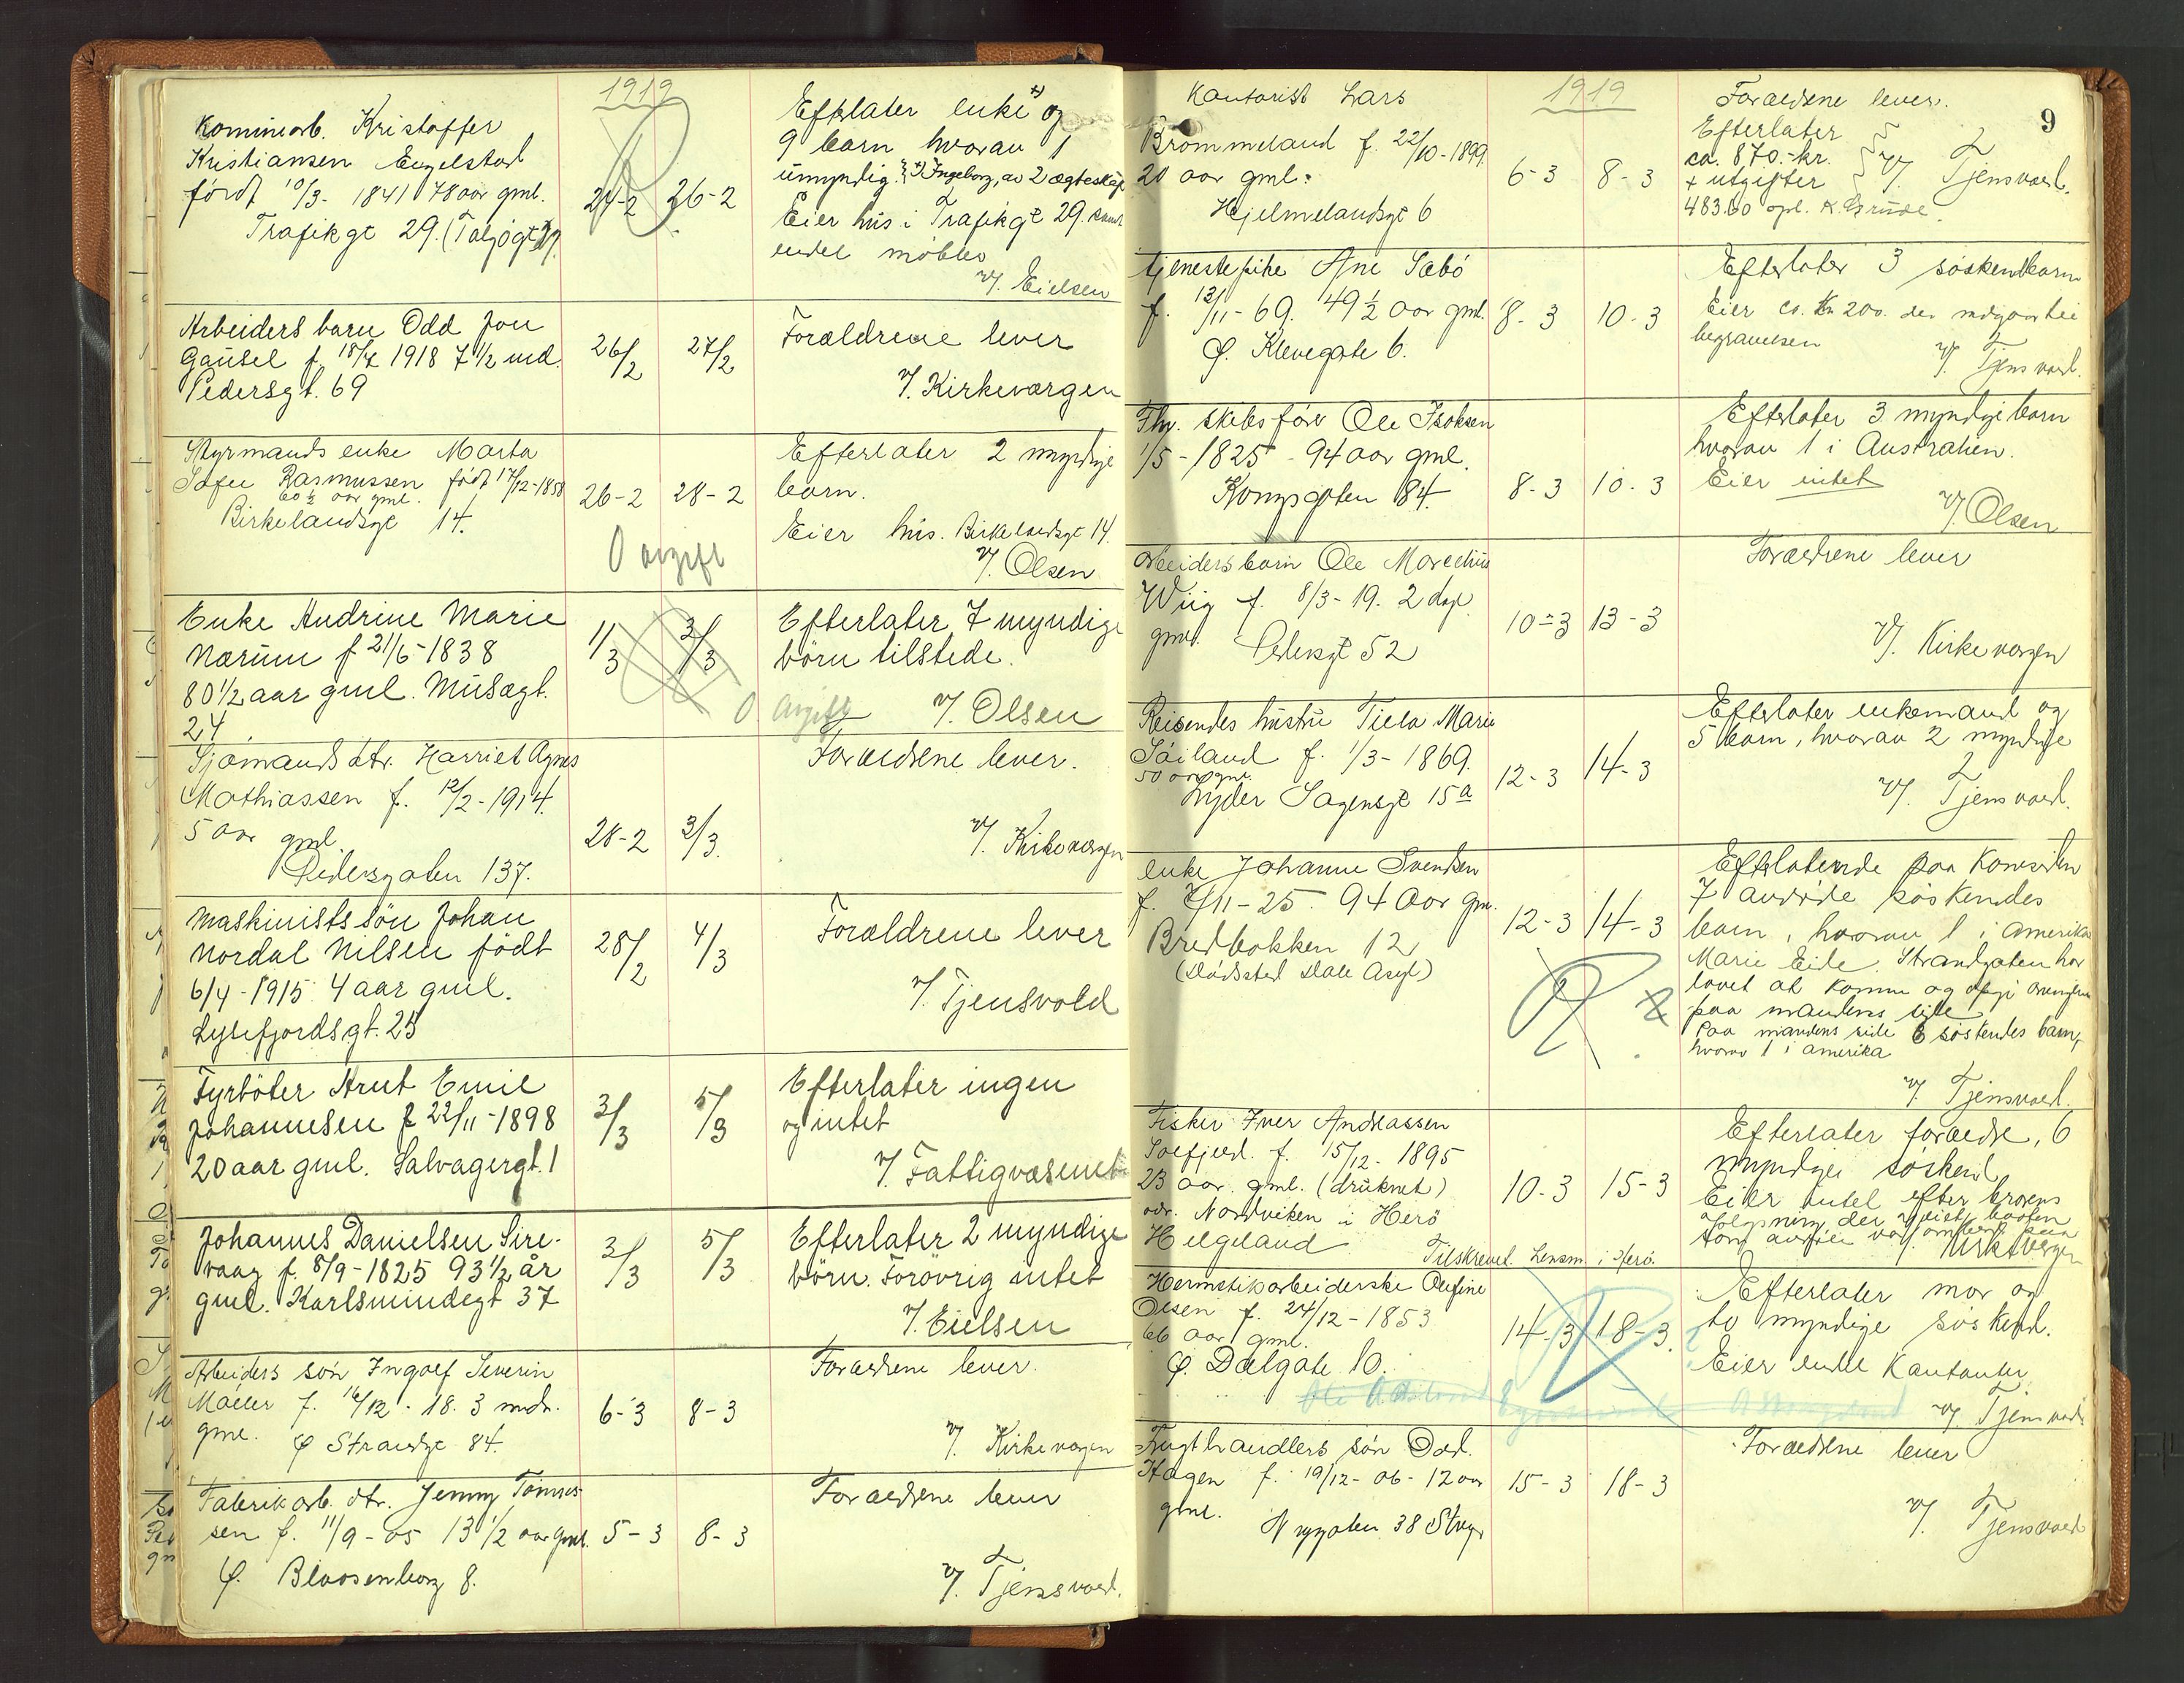 1919
Kommearb. Kristoffer
Kristiansen Engelstad
född 10/3- 1841 78 aar gml.
Trafikgt 29.
24-2 26-2
Efterlater enke +) og
9 barn hvorav 1
umyndig. +) Ingeborg, av 2 ægteskap
Eier hus i Trafikgt 29. samt
endel möbler
v/. Eielsen
Arbeiders barn Odd Jon
Gausel f. 18/7 1918 7 1/2 md.
Pedersgt. 69
26/2 27/2
Forældrene lever
v/. Kirkeværgen
Styrmands enke Marta
Sofie Rasmussen född 17/12-1858
60 1/2 aar gml.
Birkelandsgt 14.
26-2 28-2
0 avgift
Efterlater 2 myndige
barn.
Eier hus. Birkelandsgt 14.
v/. Olsen
Enke Andrine Marie
Nærum f 21/6-1838
80 1/2 aar gml. Musægt.
24
1/3 3/3
Efterlater 7 myndige
börn tilstede.
0 Avgift v/. Olsen
Sjömands dtr. Harriet Agnes
Mathiassen f. 12/2-1914.
5 aar gml.
Pedersgaten 137.
28-2 3/3.
Forældrene lever.
v/. Kirkeværgen
Maskinists sön Johan
Nordal Nilsen född
6/4-1915 4 aar gml.
Lysefjordsgt. 25
28/2 4/3
Forældrene lever
v/. Tjensvold
Fyrböter Arnt Emil
Johannesen f 22/11-1898
20 aar gml. Salvagergt. 1
3/3 5/3
Efterlater ingen
og intet
v/. Fattigvæsenet
Johannes Danielsen Sire-
vaag f. 8/9-1825 93 1/2 år
gml. Karlsmindegt 37
3/3 5/3
Efterlater 2 myndige
börn. Forövrig intet
v/. Eielsen
Arbeiders sön Ingolf Severin
Möller f. 16/12-18. 3 mdr.
gml. Ö Strandgt 84.
6-3 8-3
Forældrene lever.
v/. Kirkeværgen
Fabrikarb. dtr. Jenny Tönnes-
sen f. 11/9-05 13 1/2 aar gml.
Ö. Blaasenborg 8.
5-3 8-3
Forældrene lever
v/. Tjensvold.
9
1919
Kontorist Lars
Brommeland f. 22/10-1899
20 aar gml.
Hjelmelandsgt 6
6-3 8-3
Forældrene lever.
Efterlater
ca. 870.-kr.
+ utgifter
483.60 opl. K. Grude.
v/. Tjensvold.
Tjenestepike Ane Sæbö
f. 13/11-69. 49 1/2 aar gml.
Ö. Klevegate 6.
8-3 10-3
Efterlater 3 söskenbarn
Eier ca. Kr 200. der medgaar til
begravelsen
v/. Tjensvold.
Fhv. skibsförer Ole Isaksen
1/5-1825 - 94 aar gml.
Kongsgaten 84.
8-3 10-3
Efterlater 3 myndige barn
hvorav 1 i Australien.
Eier intet
v/. Olsen
Arbeiders barn Ole Marelius
Wiig f. 8/3-19. 2 dage
gml. Pedersgt 52
10-3 13-3
Forældrene lever
v/. Kirkeværgen
Reisendes hustru Tiela Marie
Söiland f. 1/3-1869.
50 aar gml.
Lyder Sagensgt 15a
12-3 14-3
Efterlater enkemand og
5 barn, hvorav 2 myndige
v/. Tjensvold.
Enke Johanne Svendsen
f. 2/11-25. 94 aar gml.
Bredbakken 12
(Dödssted Dale Asyl)
12-3 14-3
Efterlatende paa Konesiden
7 avdöde söskendes
barn, hvorav 1 i Amerika
Marie Eide. Strandgaten har
lovet at komme og opgi arvingene
paa mandens side
Paa mandens side 6 söskendes barn,
hvorav 1 i Amerika
v/ Tjensvold.
Fisker Iver Andreassen
Solfjeld. f. 15/12-1895
23 aar gml. (druknet)
adr. Nordviken i Herö
Helgeland
10-3 15-3
Tilskrevet Lensm. i Herö.
Efterlater forældre, 6
myndige söskend
Eier intet efter brorens
Kirkeverge
Hermetikarbeiderske Olefine
Olsen f. 24/12-1853
66 aar gml.
Ö Dalgate 10.
14-3 18-3.
Efterlater mor og
to myndige söskend.
Eier endel Kontanter
v/. Tjensvold
Frugthandlers sön Odd.
Hagen f. 19/12-06-12 aar
gml.
Nygaten 38 Stvgr
15-3 18-3
Forældrene lever
v/. Tjensvold